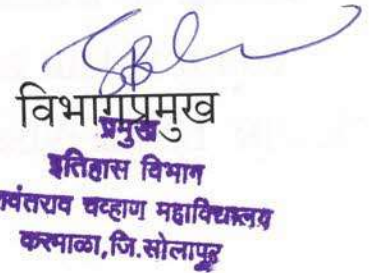 विभागप्रमुख
प्रमुख
इतिहास विभाग
वंतराव चव्हाण महाविद्यालय
करमाळा, जि.सोलापूर